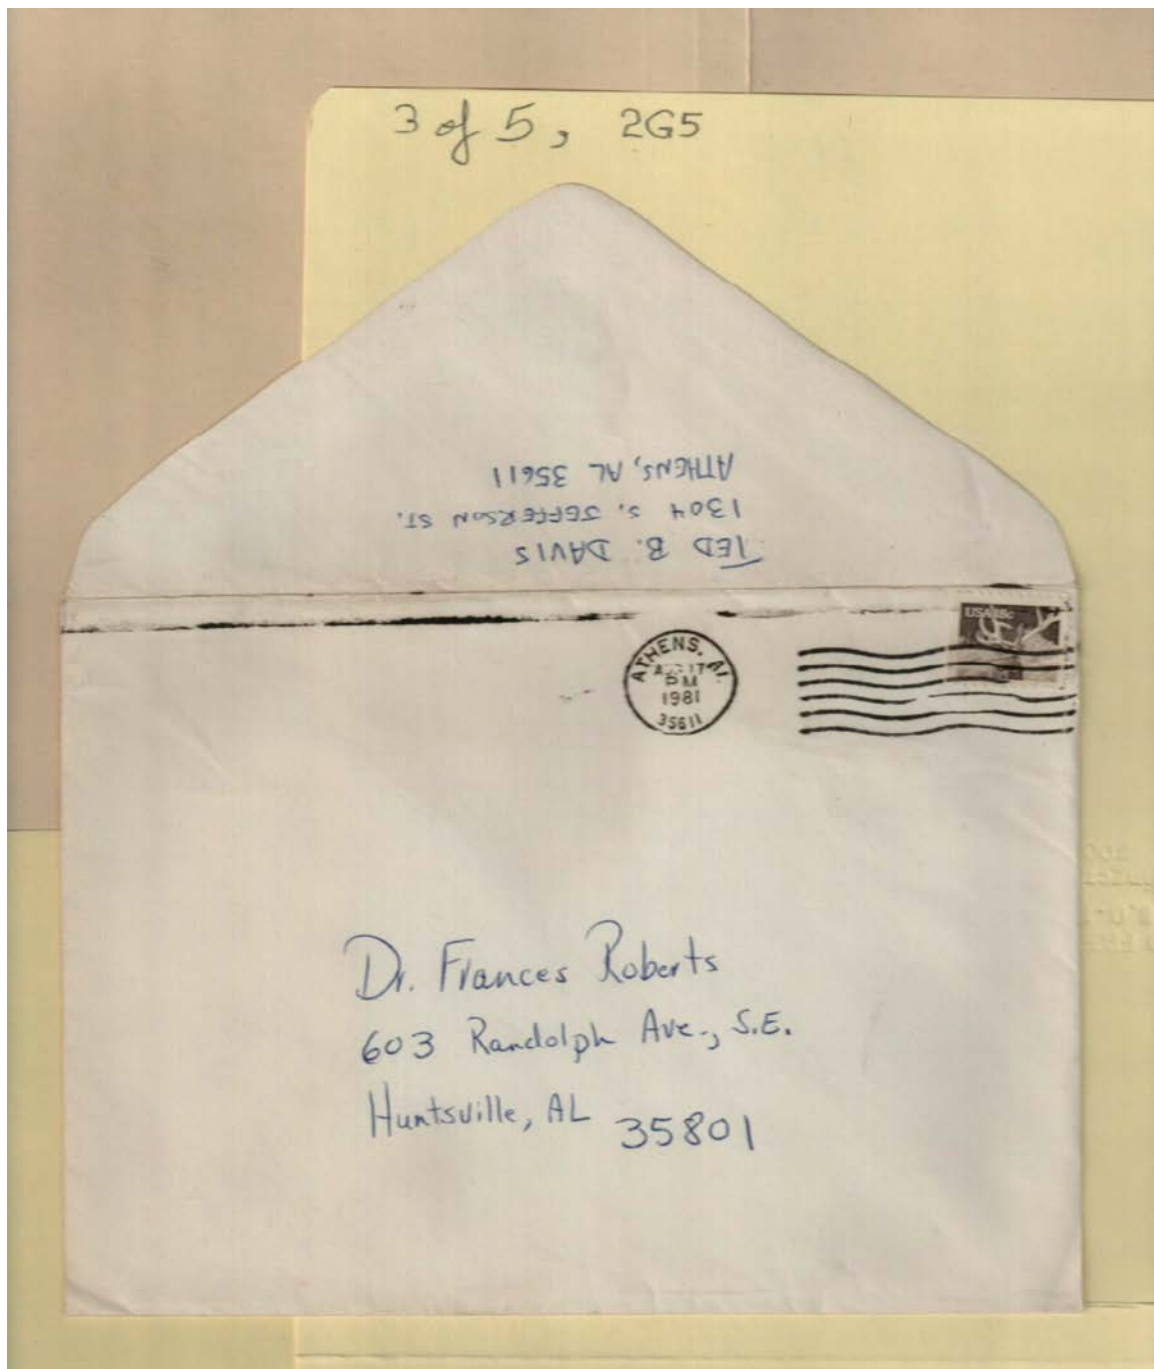 3 of 5, 2G5
TED B. DAVIS
1304 S. JEFFERSON ST.
ATHENS, AL 35611
USA 18c
ATHENS, AL
AUG 17
PM
1981
35611
Dr. Frances Roberts
603 Randolph Ave., S.E.
Huntsville, AL 35801